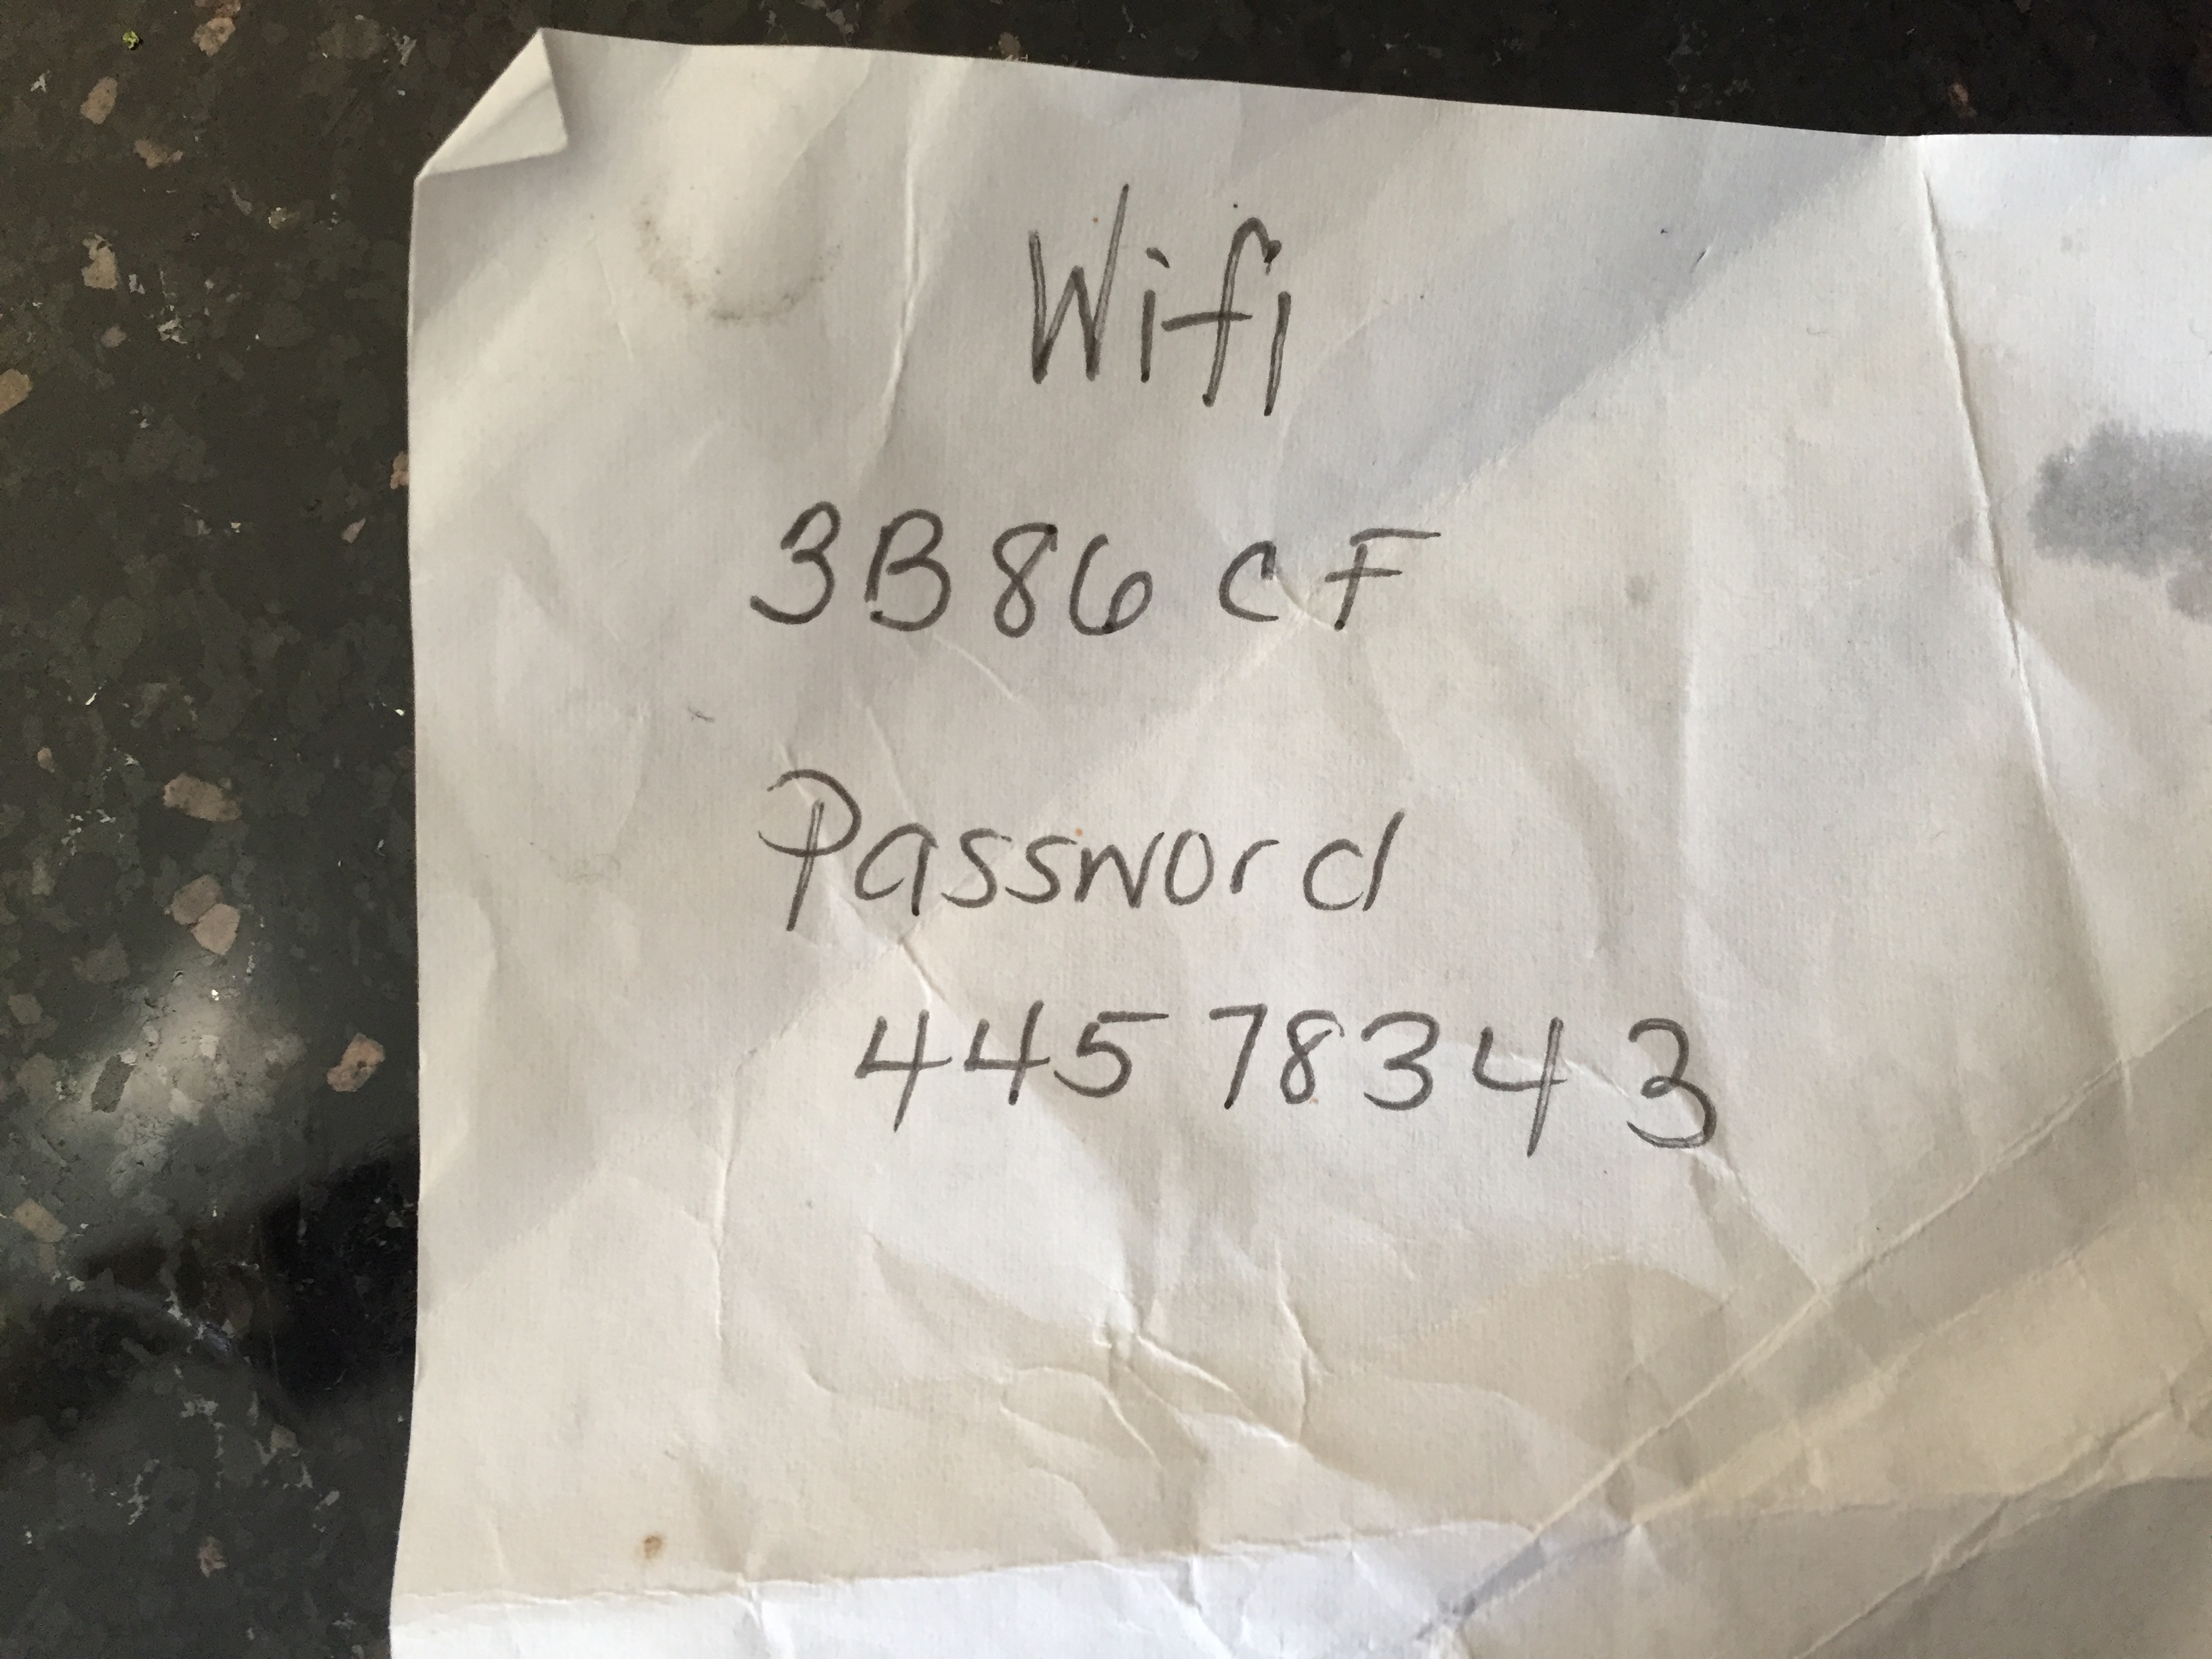 Wifi
3B86CF
Password
445-78343